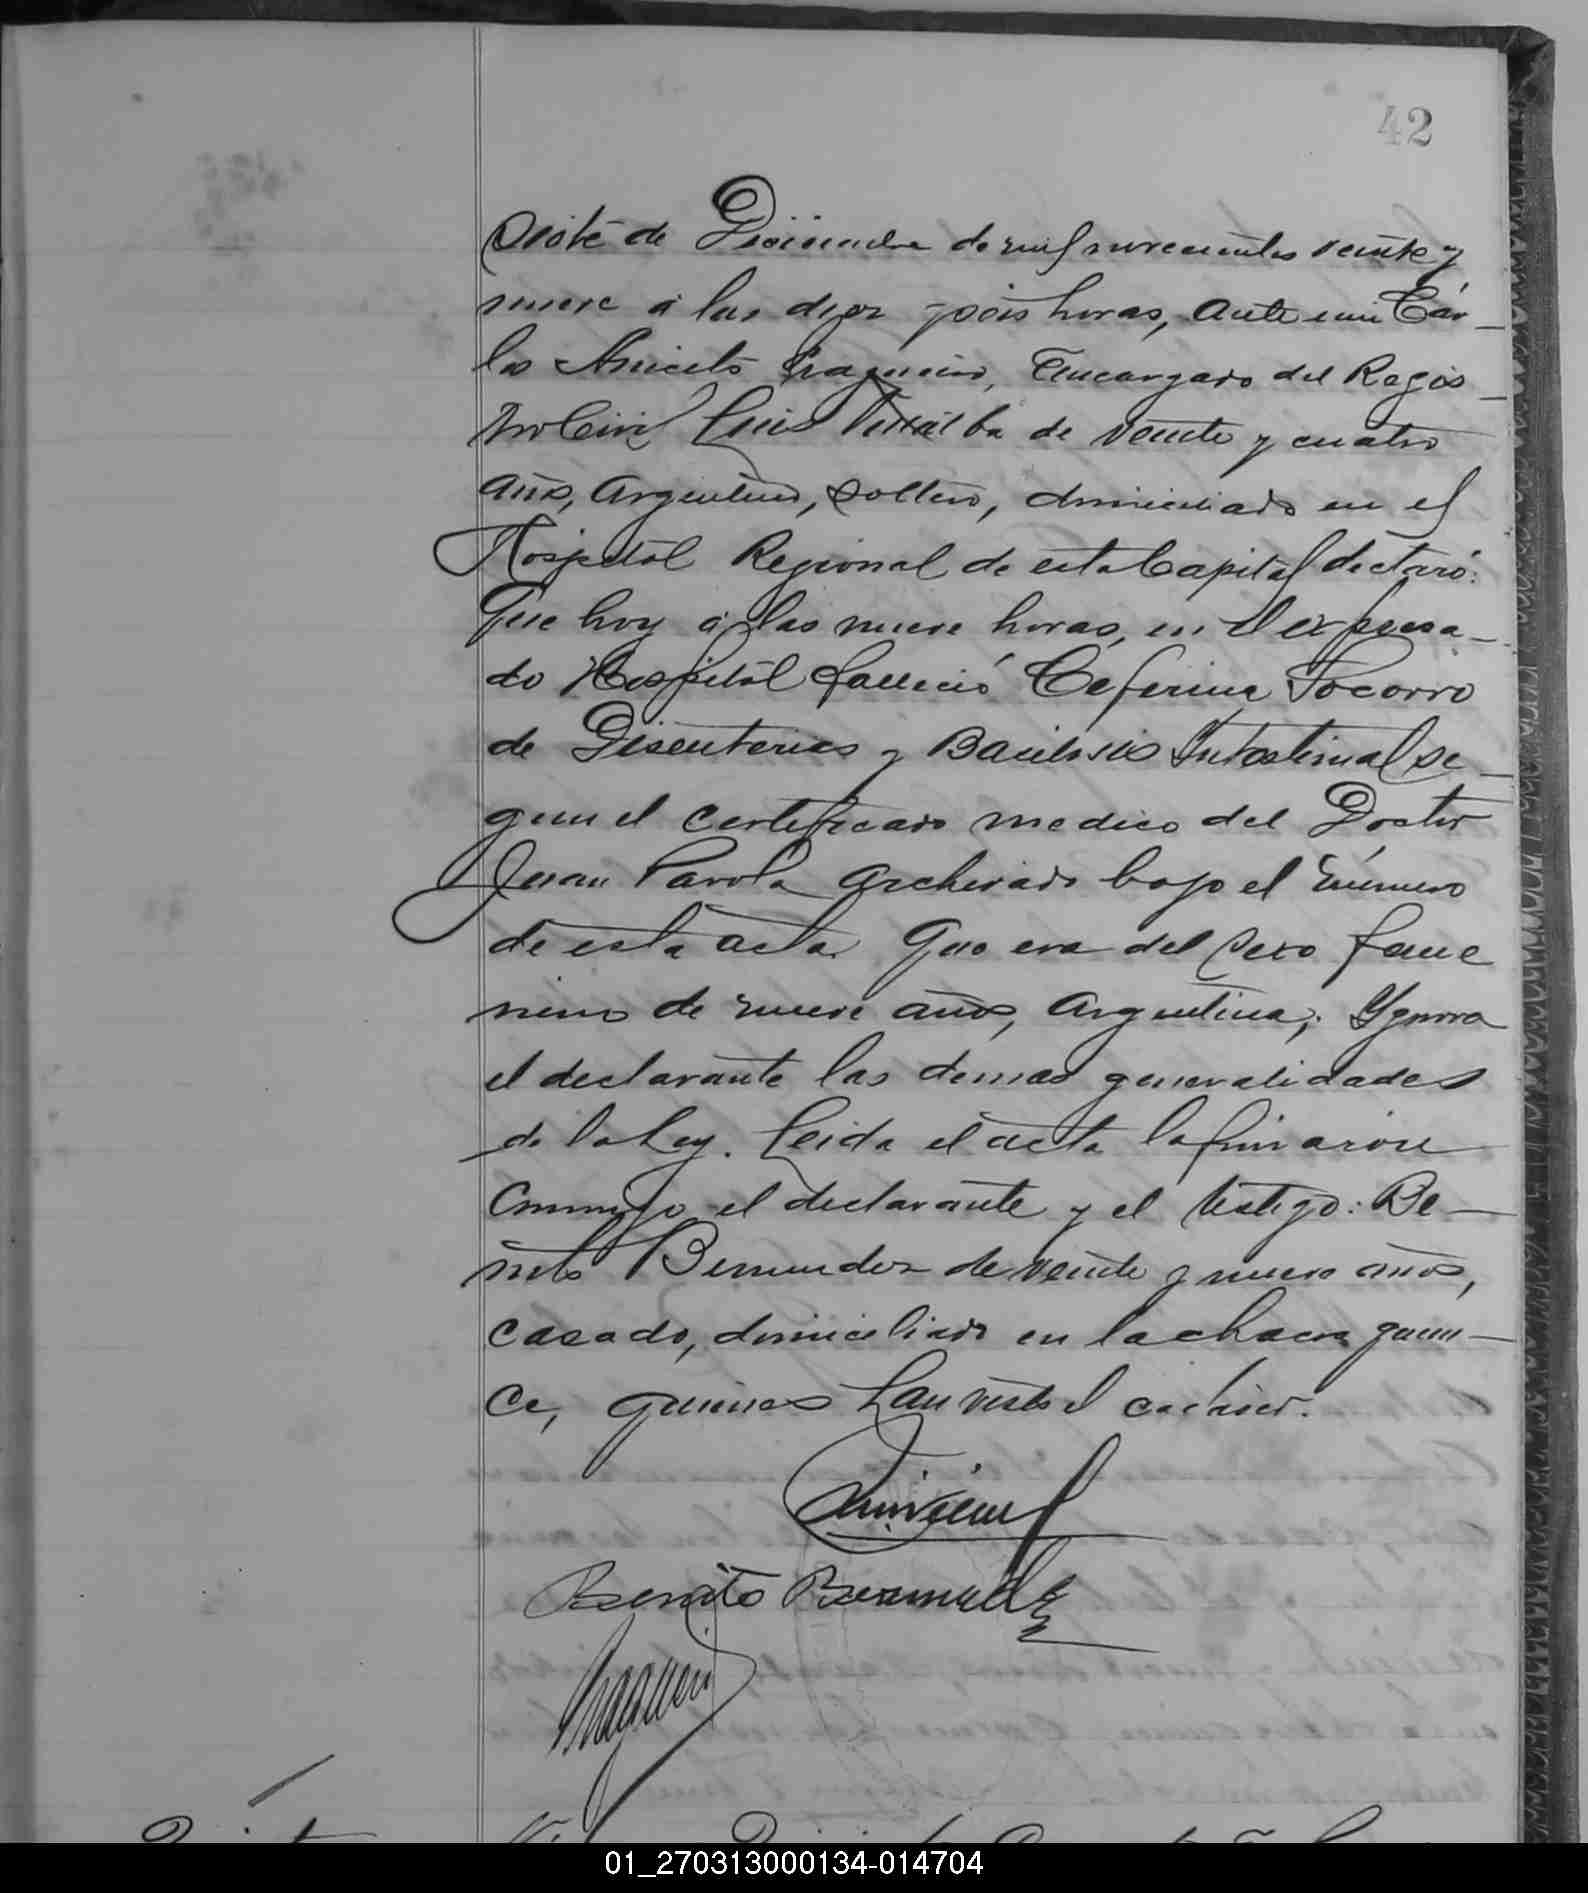 42
siete de Diciembre de mil novecientos veinte y
nueve á las diez y seis horas, ante mi Cár-
los Aniceto Fragueiro, Encargado del Regis-
tro Civil Luis Villalba de veinte y cuatro
años, argentino, soltero, domiciliado en el
Hospital Regional de esta Capital declaró:
Que hoy á las nueve horas, en el expresa-
do Hospital falleció Ceferina Socorro
de Disenteria y Bacilosis Intestinal se-
gun el certificado medico del Doctor
Juan Parola archivado bajo el número
de esta acta. Que era del sexo feme
nino de nueve años, argentina; Ygnora
el declarante las demas generalidades
de la Ley. Leida el acta la firmaron
conmigo el declarante y el testigo: Be-
nito Bermudez de veinte y nueve años,
casado, domiciliado en la chacra quin-
ce, quienes han visto el cadáver.
Benito Bermudez
Fragueiro
01_270313000134-014704